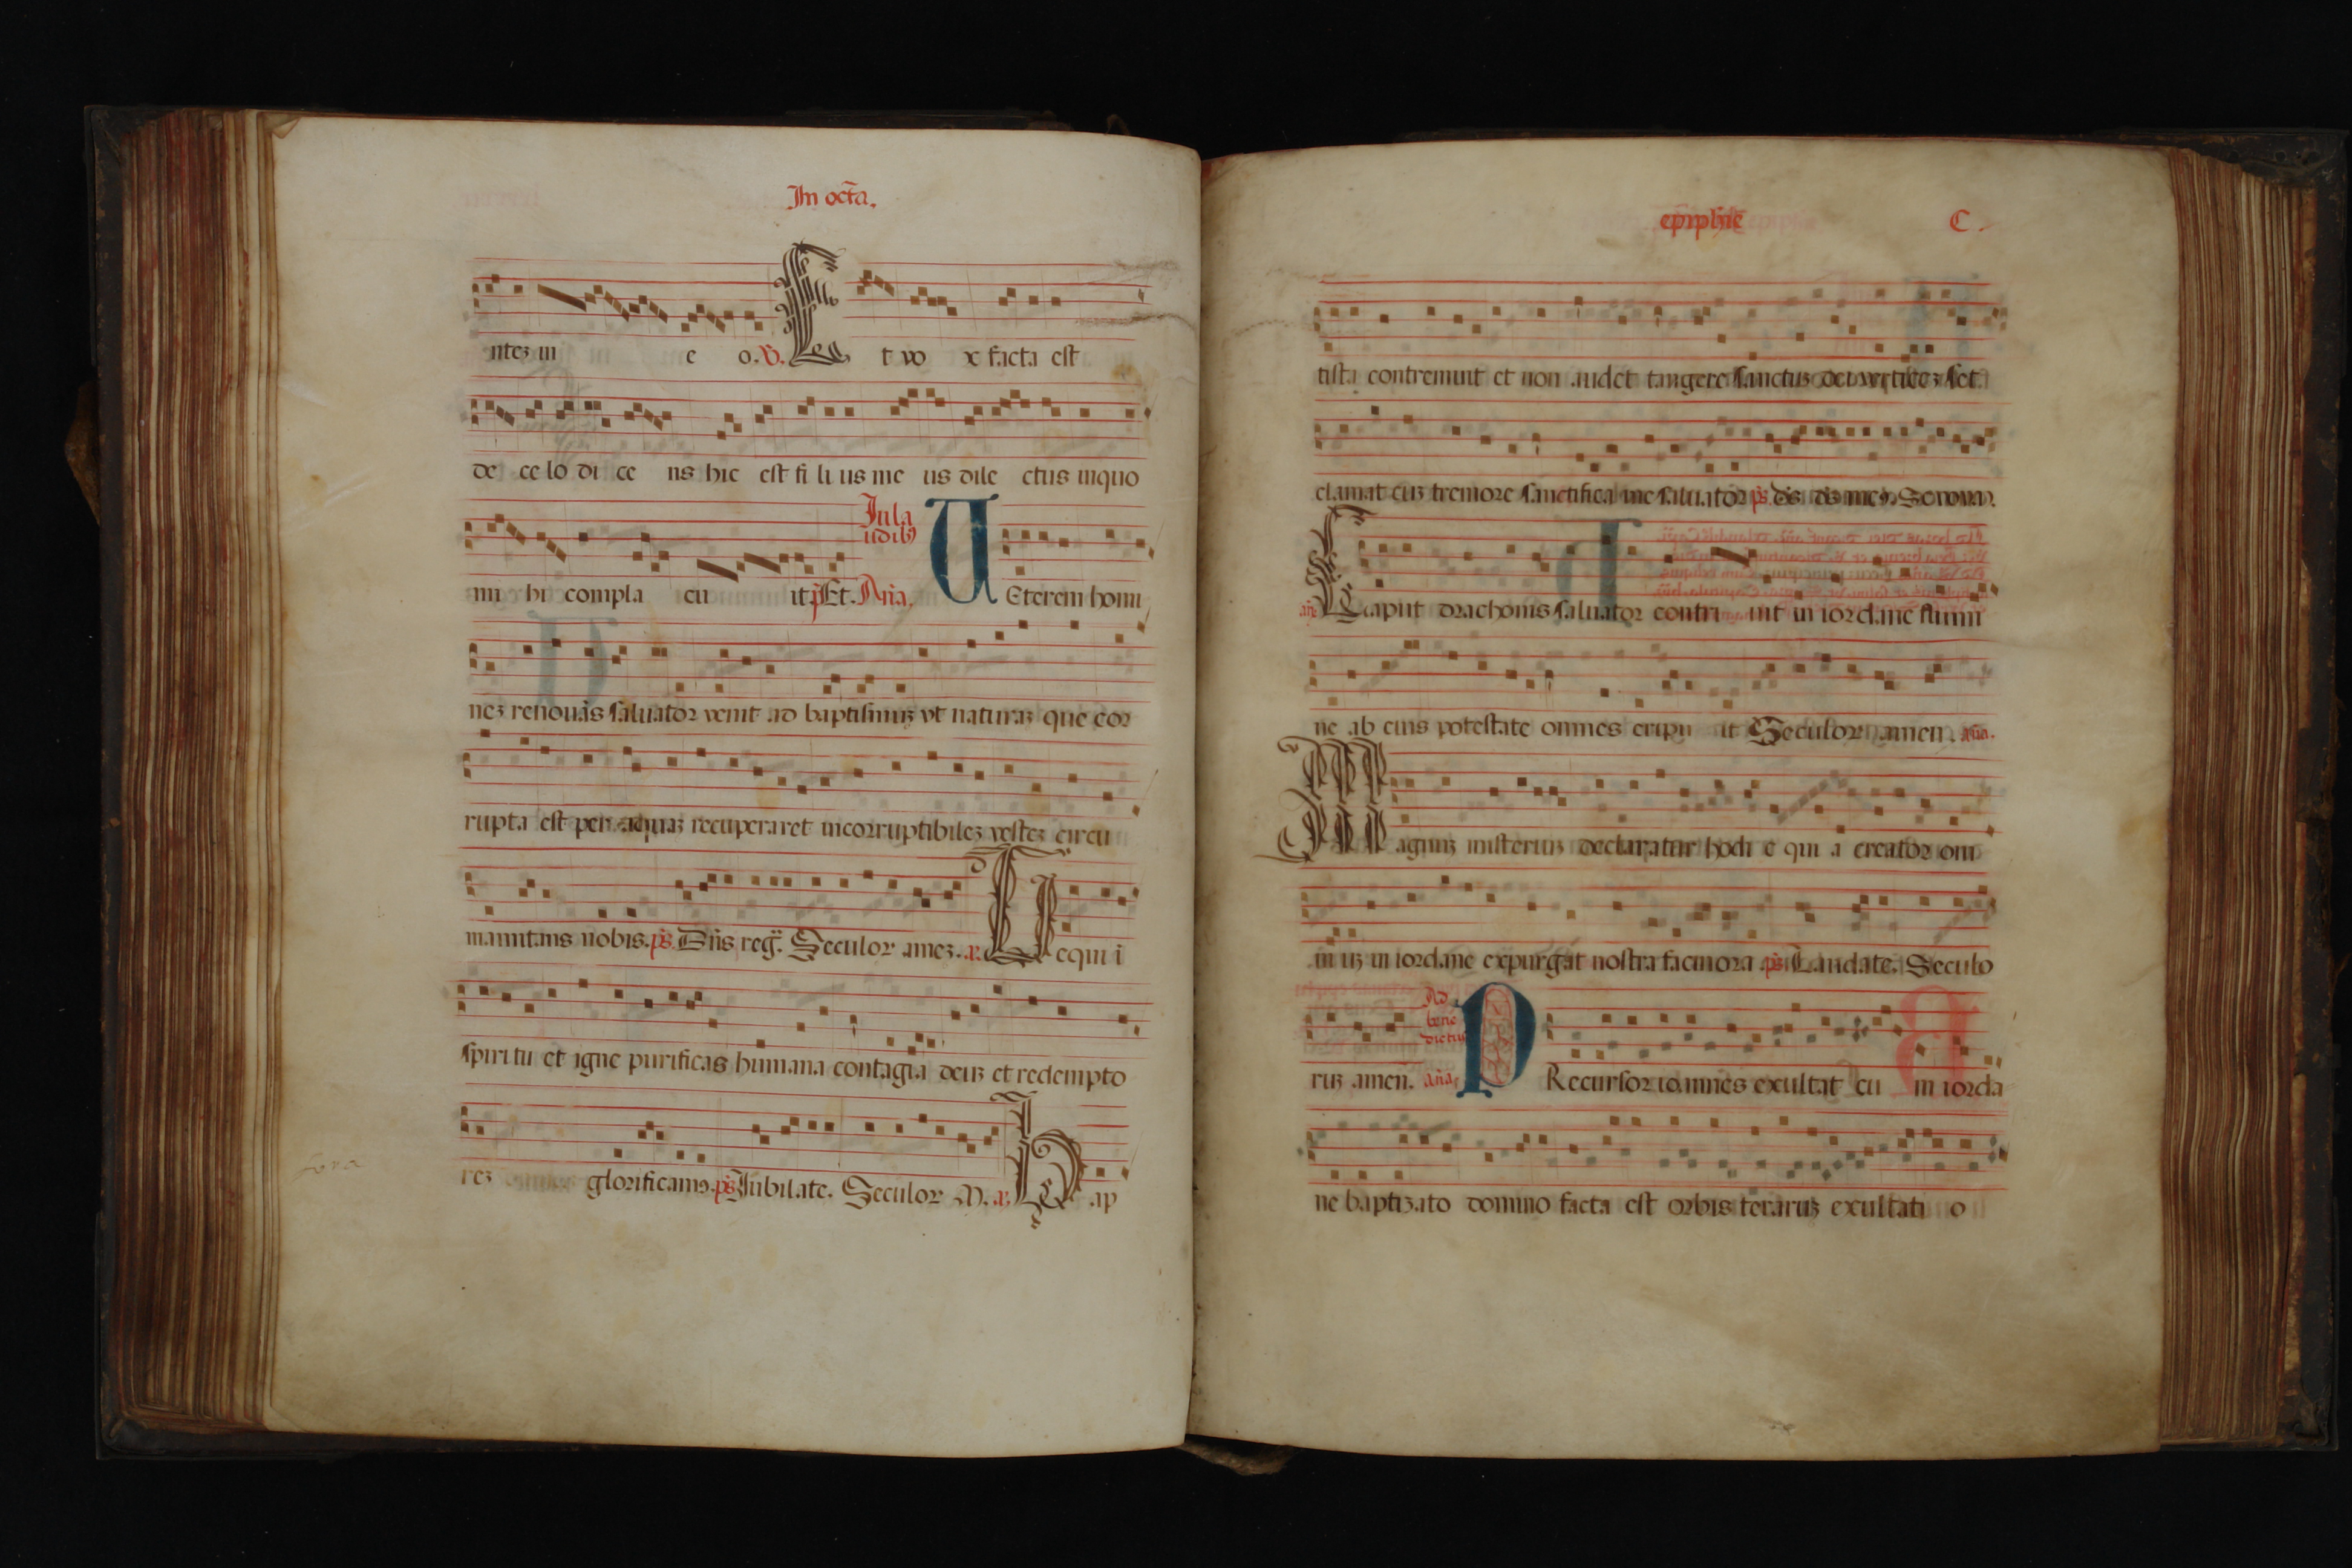 In octa.
ntez in e o. V. Et vo x facta est
de ce lo di ce ns hic est fi li us me us dile ctus inquo
In la
udib9
mi hi compla cu it. p. Et. Aña. Veterem homi
nez renouās saluator venit ad baptismuz vt naturaz que cor
rupta est per aquaz recuperaret incorruptibilez vestez circu
mamictans nobis. ps. Dñs reg. Seculor amez. a. Te qui ī
spiritu et igne purificas humana contagia deuz et redempto
rez glorificamus. ps. Jubilate. Seculor a. Bap
fora
epiphīe C.
tista contremuit et non audet tangere sanctuz dei verticez set
clamat cuz tremore sanctifica me saluator ps. ds ds me9. Seuouae.
aña Caput drachonis saluator contri uit in iordane flumi
ne ab eius potestate omnes eripu it Seculor amen. aña.
Magnuz misteriuz declaratur hodi e qui a creator om
in uz in iordane expurgat nostra facinora ps. Laudate. Seculo
Ad
bene
dictus
ruz amen. aña. PRecursor ioannes exultat cu m iorda
ne baptizato domino facta est orbis teraruz exultati o